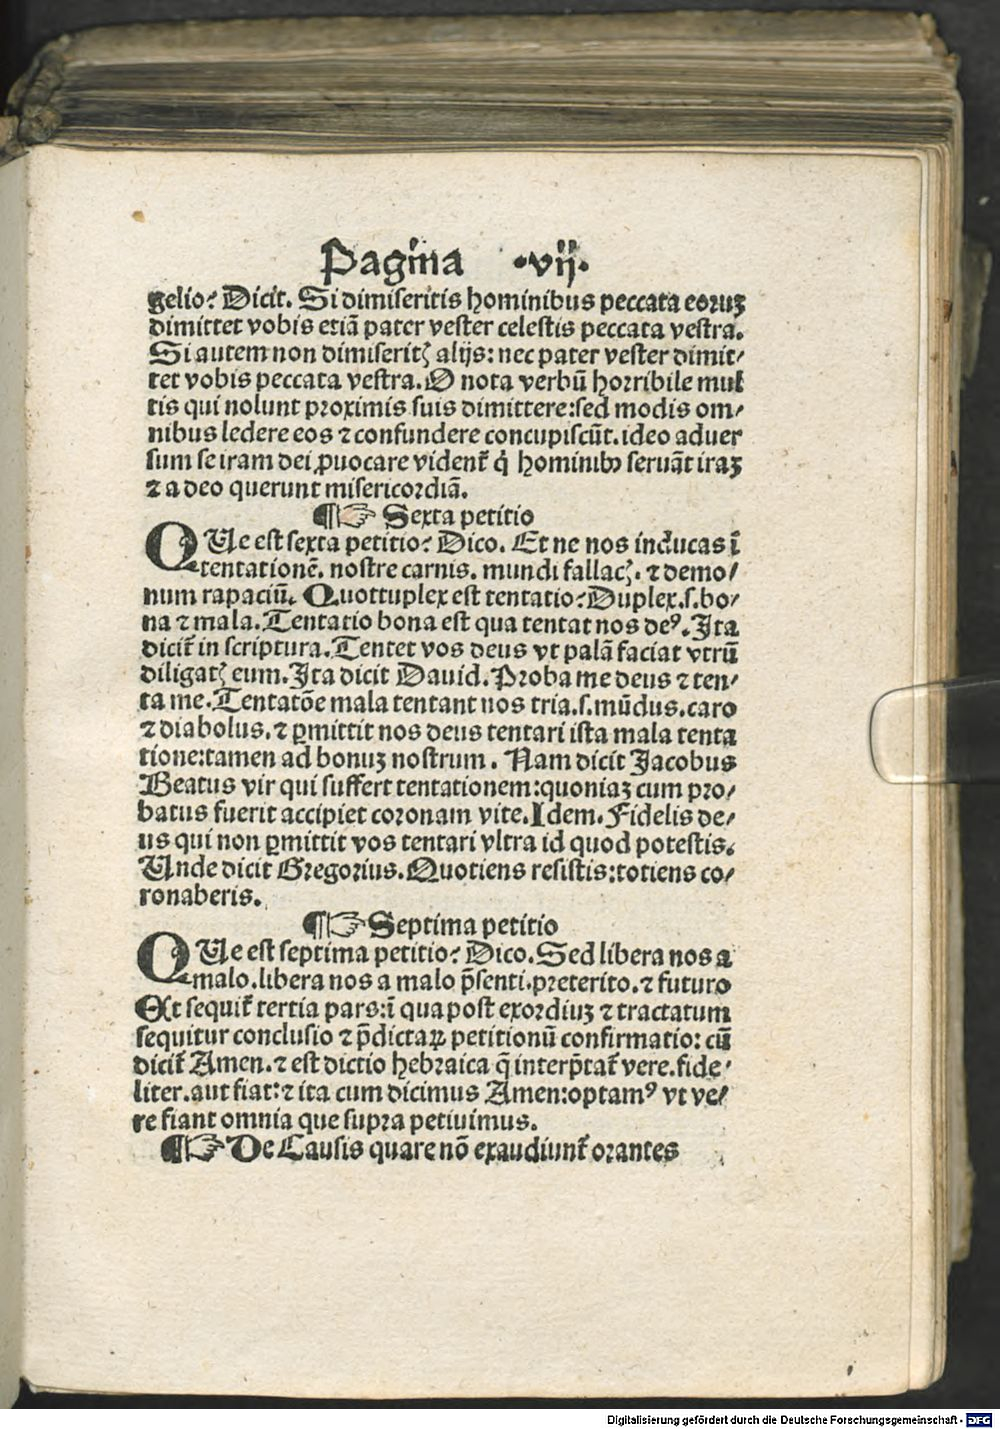 Pagina ·vij·
gelio? Dicit. Si dimiseritis hominibus peccata eoruꝫ
dimittet vobis etiā pater vester celestis peccata vestra.
Si autem non dimiseritꝭ alijs: nec pater vester dimit⸗
tet vobis peccata vestra. O nota verbū horribile mul
tis qui nolunt proximis suis dimittere: sed modis om⸗
nibus ledere eos ⁊ confundere concupiscūt. ideo aduer
sum se iram dei ꝓuocare vident̉ q̇ hominibꝰ seruāt iraꝫ
⁊ a deo querunt misericordiā.
¶☞ Sexta petitio
QUe est sexta petitio? Dico. Et ne nos inducas ī
tentationē. nostre carnis. mundi fallacꝭ. ⁊ demo⸗
num rapaciū. Quottuplex est tentatio? Duplex. s. bo⸗
na ⁊ mala. Tentatio bona est qua tentat nos deꝰ. Ita
dicit̉ in scriptura. Tentet vos deus vt palā faciat vtrū
diligatꝭ eum. Ita dicit Dauid. Proba me deus ⁊ ten⸗
ta me. Tentatōe mala tentant nos tria. s. mūdus. caro
⁊ diabolus. ⁊ ꝑmittit nos deus tentari ista mala tenta
tione: tamen ad bonuꝫ nostrum. Nam dicit Jacobus
Beatus vir qui suffert tentationem: quoniaꝫ cum pro⸗
batus fuerit accipiet coronam vite. Idem. Fidelis de⸗
us qui non ꝑmittit vos tentari vltra id quod potestis.
Unde dicit Gregorius. Quotiens resistis: totiens co⸗
ronaberis.
¶☞ Septima petitio
QUe est septima petitio? Dico. Sed libera nos a
malo. libera nos a malo p̄senti. preterito. ⁊ futuro
Et sequit̉ tertia pars: ī qua post exordiuꝫ ⁊ tractatum
sequitur conclusio ⁊ p̄dictaꝝ petitionū confirmatio: cū
dicit̉ Amen. ⁊ est dictio hebraica q̄ interp̄tat̉ vere. fide⸗
liter. aut fiat: ⁊ ita cum dicimus Amen: optamꝰ vt ve⸗
re fiant omnia que supra petiuimus.
¶☞ De Causis quare nō exaudiunt̉ orantes
Digitalisierung gefördert durch die Deutsche Forschungsgemeinschaft - DFG